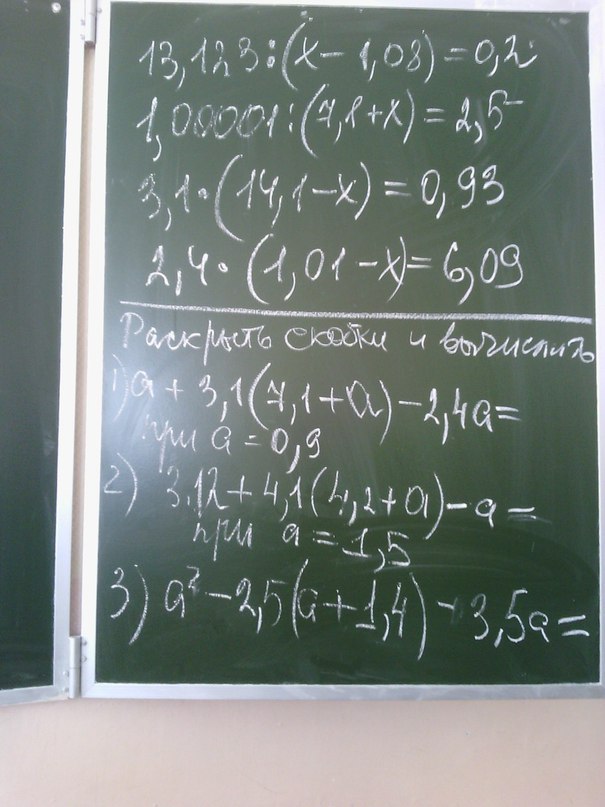 13,123:(x-1,08)=0,2
1,00001:(7,1+x)=2,5
3,1·(14,1-x)=0,93
2,4·(1,01-x)=6,09
Раскрыть скобки и вычислить
1) a + 3,1(7,1+a)-2,4a=
при a = 0,9
2) 3,12+4,1(4,2+a)-a=
при a=1,5
3) a²-2,5(a+1,4)-3,5a=